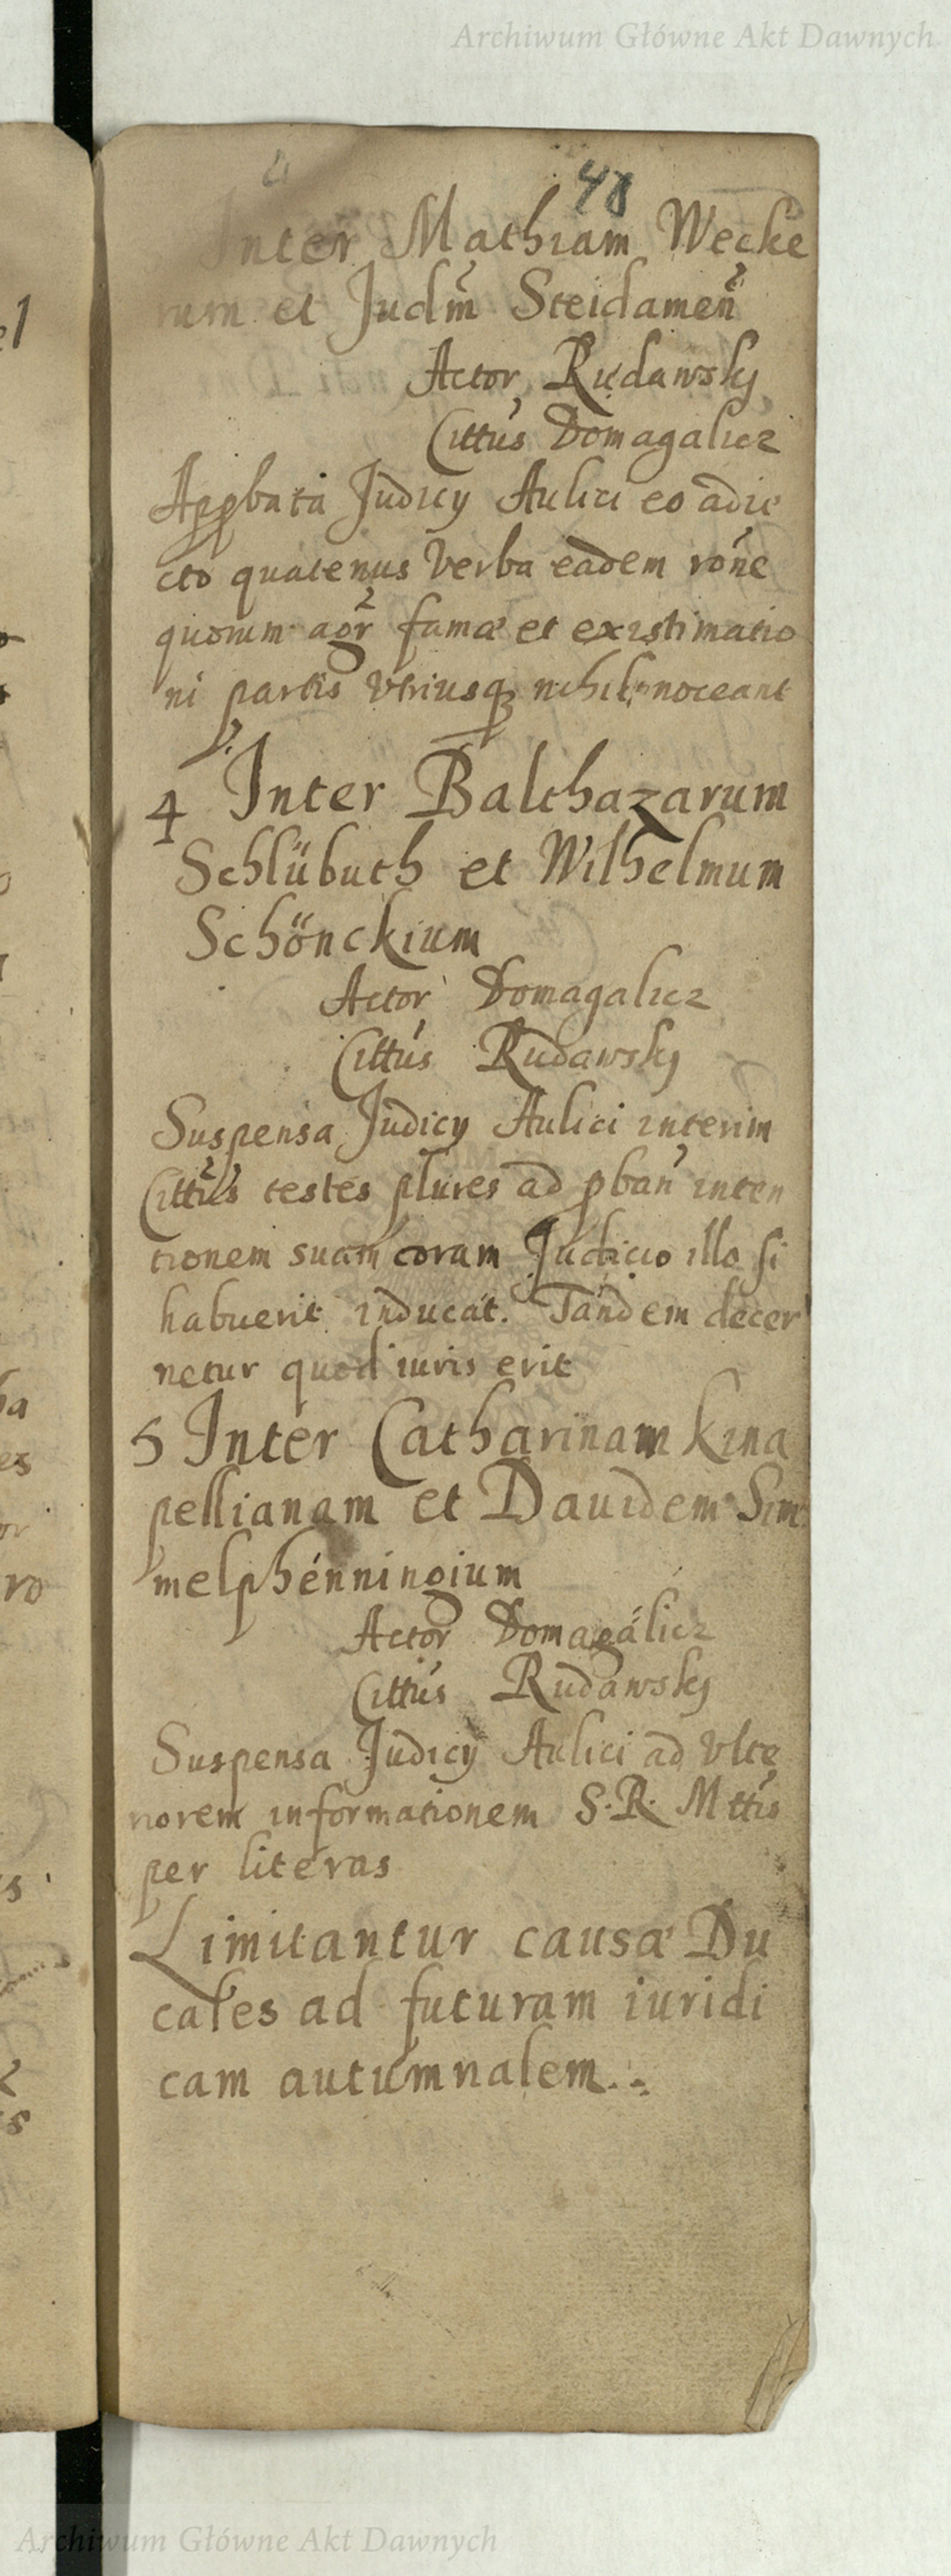 Archiwum Główne Akt Dawnych
48
Inter Mathiam Wecke
rum et Judm̃ Steidameñ
Actor Rudawsky
Cittus Domagalicz
Appbata Judicy Aulici eo adie
cto quatenus Verba eadem rone
quorum agr̃ famæ et existimatio
ni partis Vtriusq nihil noceant
4 Inter Balthazarum
Schlübuth et Wilhelmum
Schönckium
Actor Domagalicz
Cittus Rudawsky
Suspensa Judicy Aulici interim
Cittus testes plures ad pban inten
tionem suam coram Judicio illo si
habuerit inducat. Tandem decer
netur quod iuris erit
5 Inter Catharinam Kina
pellianam et Dauidem Sim
melphenningium
Actor Domagalicz
Cittus Rudawsky
Suspensa Judicy Aulici ad Vlte
riorem informationem S. R. Mttis
per literas
Limitantur causæ Du
cales ad futuram iuridi
cam autumnalem.
Archiwum Główne Akt Dawnych